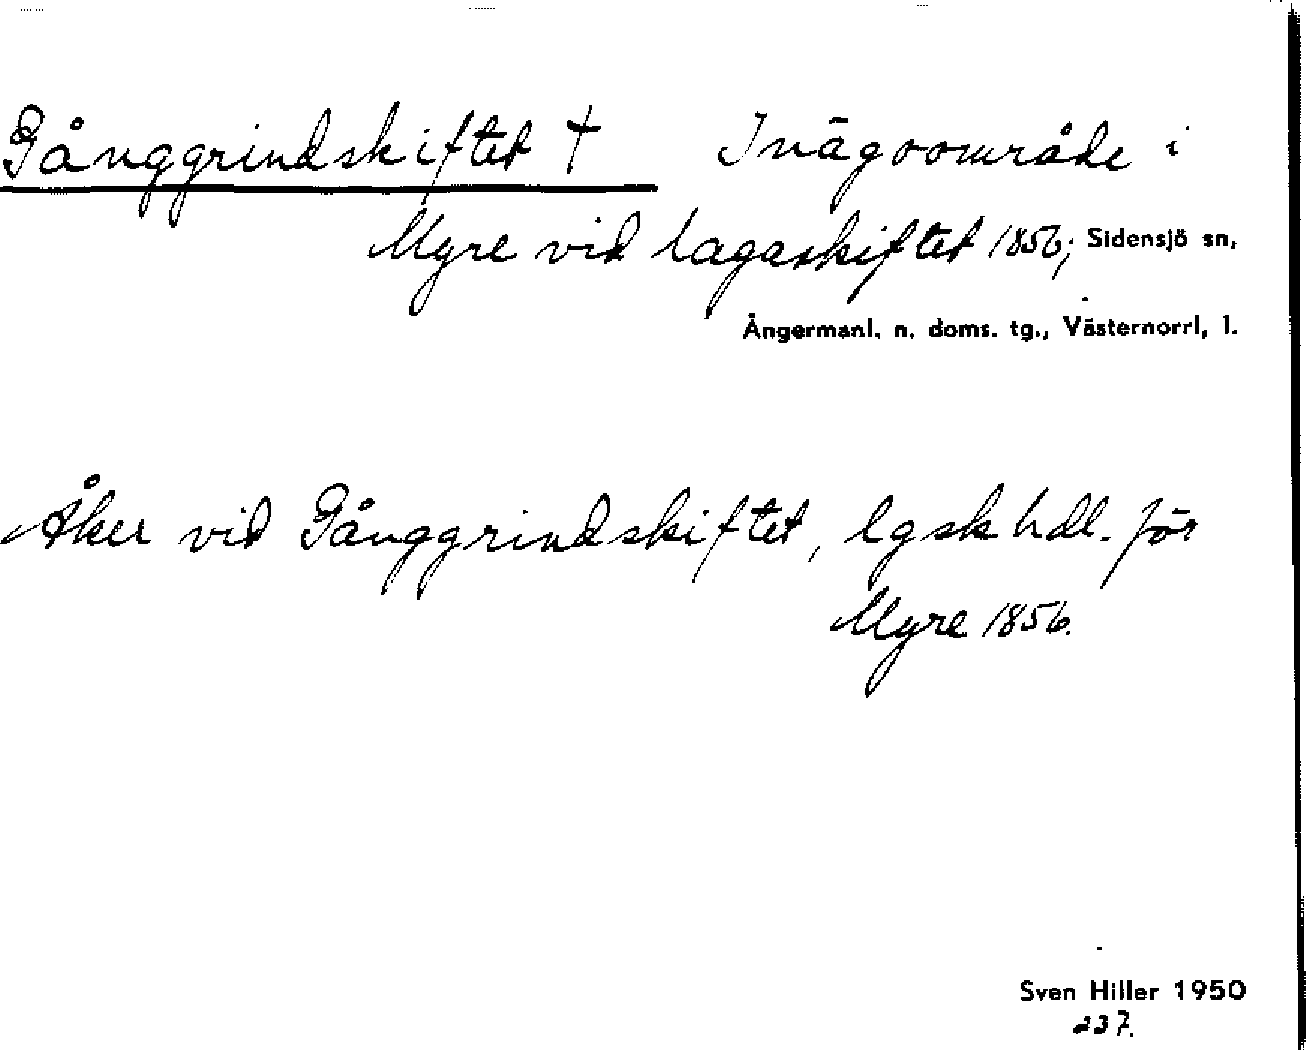 Gånggrindskiftet † Inägoområde i
Myre vid lagaskiftet 1856; Sidensjö sn,
Ångermanl. n. doms. tg., Västernorrl, l.
Åker vid Gånggrindskiftet, lgsk hdl. för
Myre 1856.
Sven Hiller 1950
237.